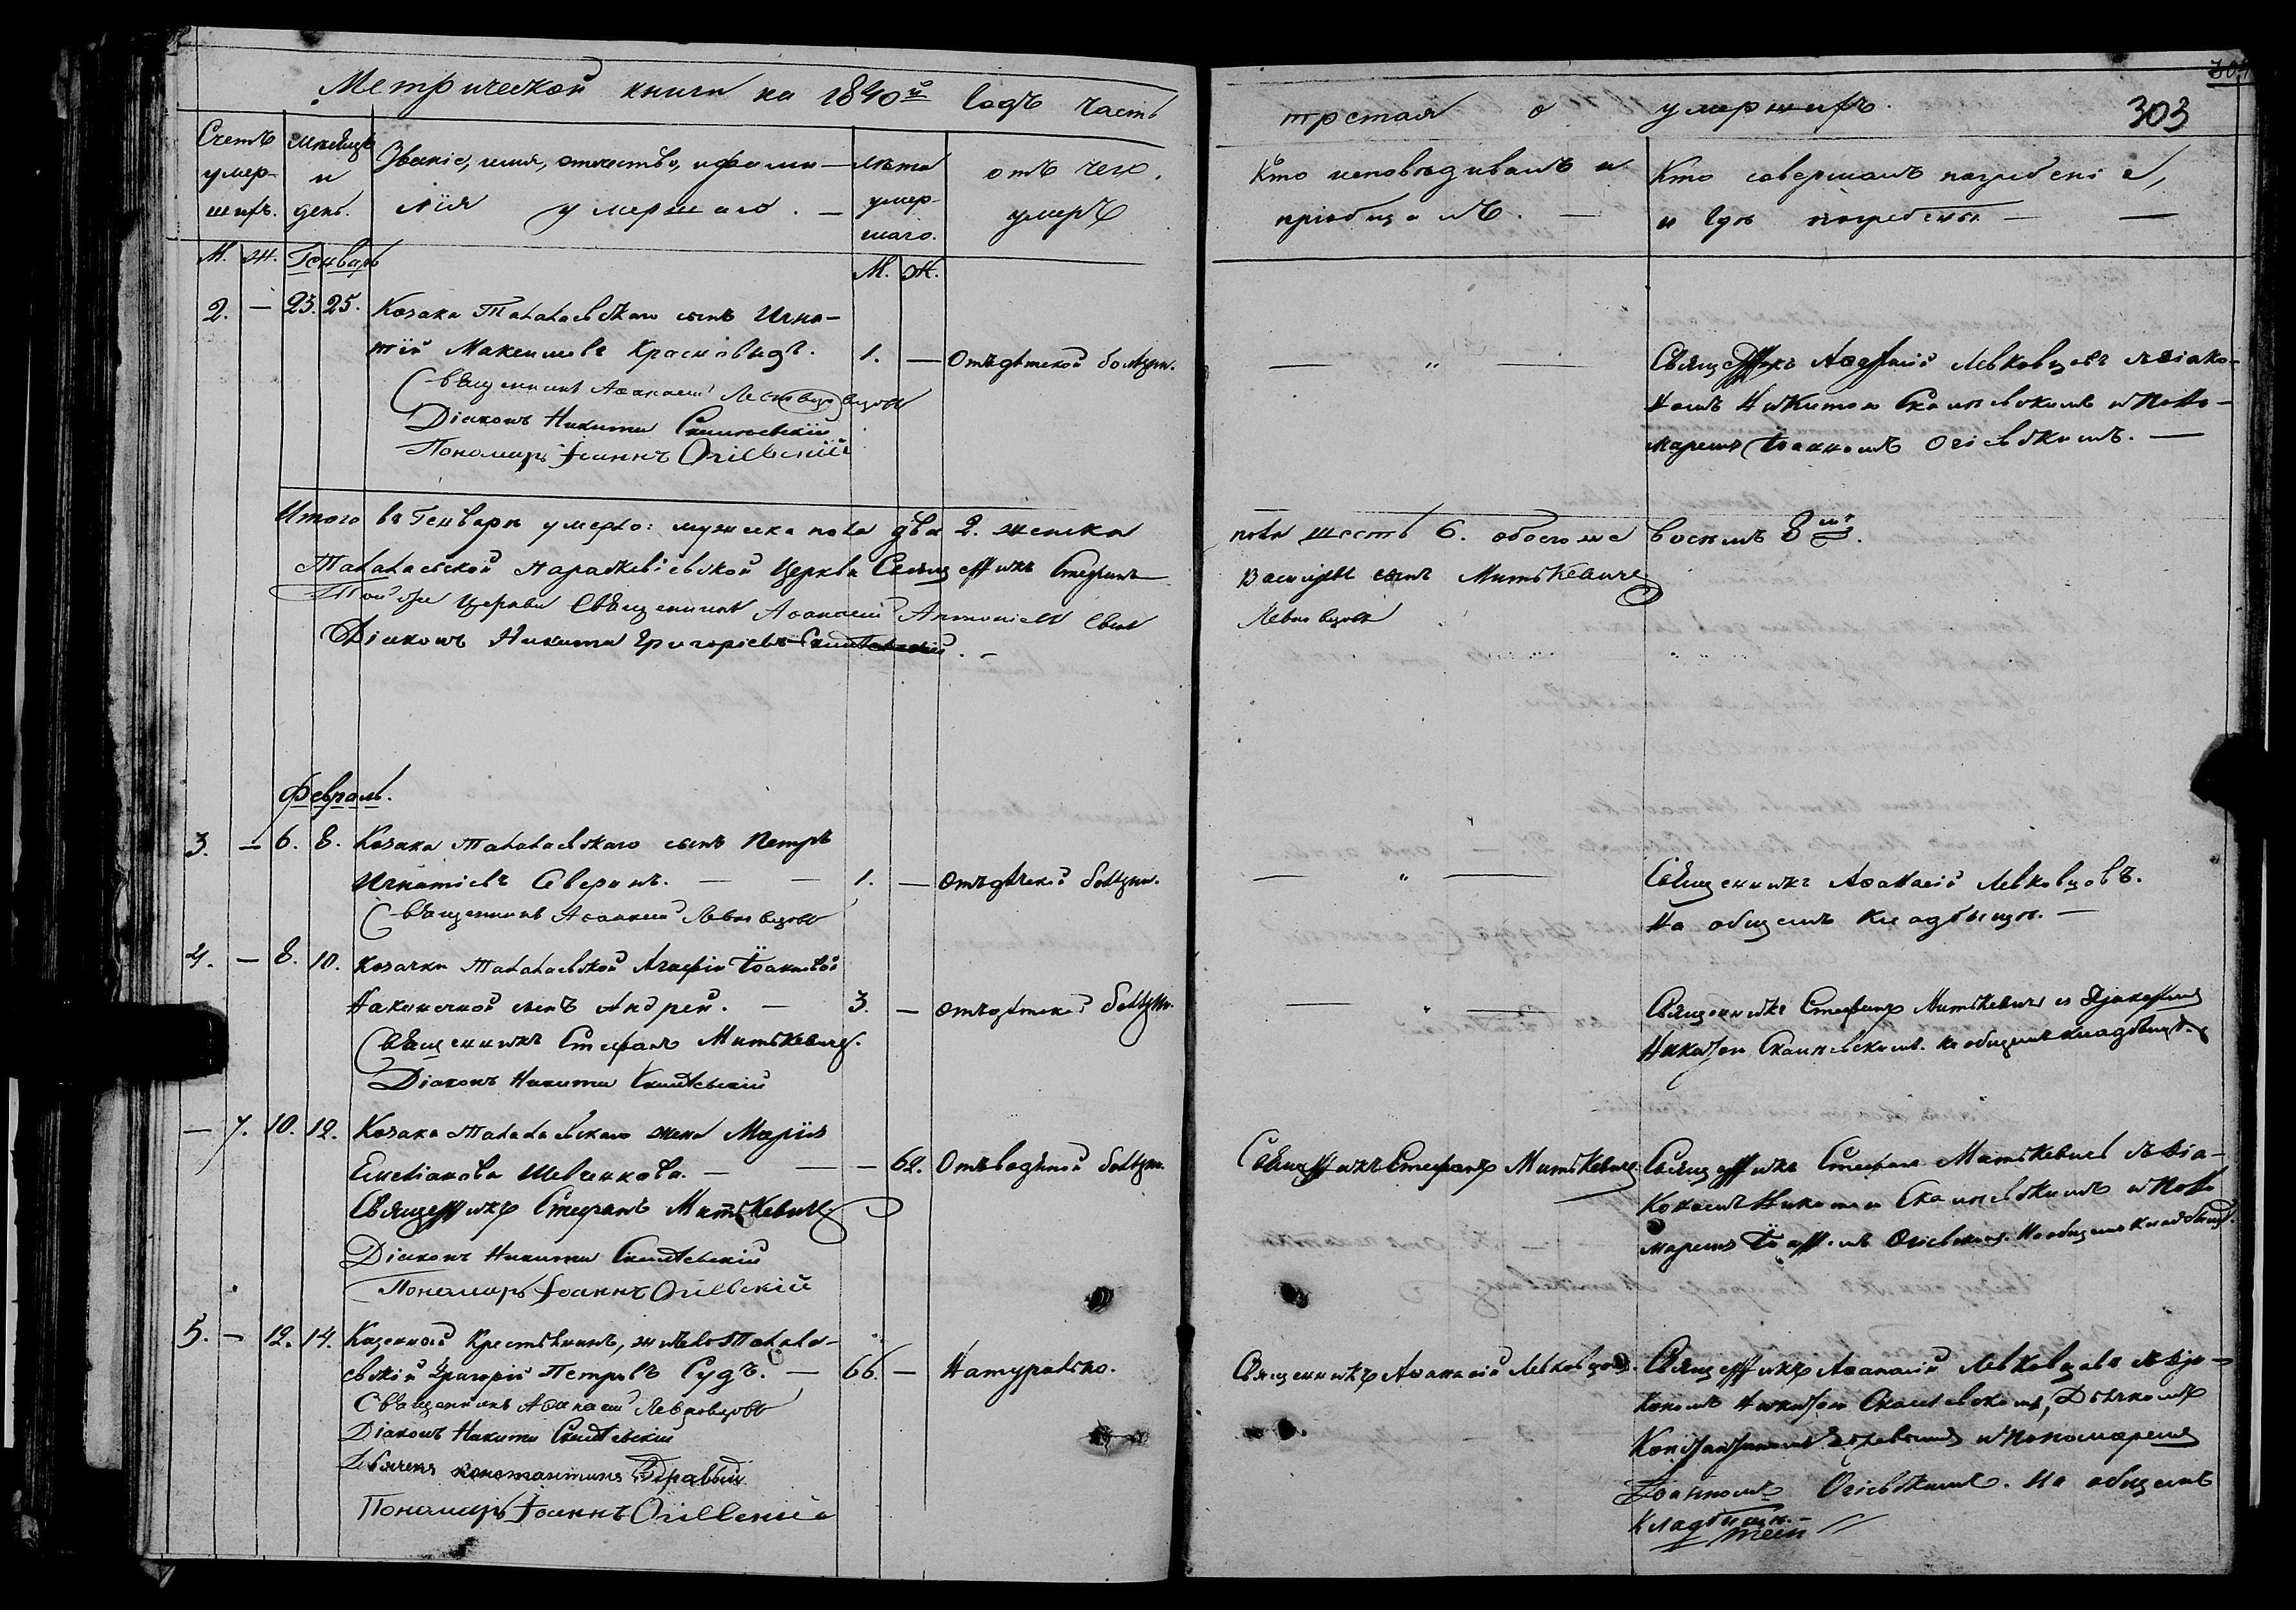 Метрической книги на 1840й годъ часть
третая о умершихъ.
303
Счетъ умер- шихъ.
Мѣсяцъ и день.
Званіе, имя, отчество, и фами-
лія умершаго. —
Лѣта умер- шаго.
отъ чего умеръ
Кто исповѣдивалъ и
пріобщалъ. —
Кто совершалъ погребеніе,
и гдѣ погребены — —
М. Ж. Генварь
М. Ж.
2. — 23. 25. Козака Талалаевскаго сынъ Игна-
тій Максимовъ Красновидъ. 1. — Отъ дѣтской болѣзни.
Священникъ Аѳанасій Левковцовъ
Діаконъ Никита
Пономарь Іоаннъ Огіевскій
— " — Священникъ Аѳанасій Левковцовъ съ Діако-
номъ Никитою и Поно-
маремъ Іоанномъ Огіевскимъ. —
Итого въ Генварѣ умерло: мужеска пола два 2. женска
пола шесть 6. обоего же восемь 8мъ.
Талалаевской Параскевіевской Церкви Священникъ Стефанъ
Васильевъ сынъ Митькевичъ
Той же Церкви Священникъ Аѳанасій Антоніевъ сынъ
Левковцовъ
Діаконъ Никита Григоріевъ
Февраль.
3. — 6. 8. Козака Талалаевскаго сынъ Петръ
Игнатіевъ Северинъ. — — 1. — Отъ дѣтской болѣзни.
Священникъ Аѳанасій Левковцовъ
— " — Священникъ Аѳанасій Левковцовъ.
На общемъ кладбищѣ. —
4. — 8. 10. Козачки Талалаевской Агафіи Іоакимовой
сынъ Андрей. — 3. — Отъ дѣтской болѣзни.
Священникъ Стефанъ Митькевичъ.
Діаконъ Никита
— " — Священникъ Стефанъ Митькевичъ съ Діакономъ
Никитою На общемъ кладбищѣ.
— 7. 10. 12. Козака Талалаевскаго жена Марія
Емеліанова Шевченкова. — — — 62. Отъ водяной болѣзни.
Священникъ Стефанъ Митькевичъ
Діаконъ Никита
Пономарь Іоаннъ Огіевскій
Священникъ Стефанъ Митькевичъ
Священникъ Стефанъ Митькевичъ съ Діа-
кономъ Никитою и Поно-
маремъ Іоанномъ Огіевскимъ. На общемъ кладбищѣ.
5. — 12. 14. Казенной Крестьянинъ, житель Талала-
евскій Григорій Петровъ Судъ. — 66. — Натурально.
Священникъ Аѳанасій Левковцовъ
Діаконъ Никита
Дьячекъ Константинъ
Пономарь Іоаннъ Огіевскій
Священникъ Аѳанасій Левковцовъ.
Священникъ Аѳанасій Левковцовъ съ Діа-
кономъ Никитою Дьячкомъ
Константиномъ и Пономаремъ
Іоанномъ Огіевскимъ. На общемъ
кладбищѣ. —